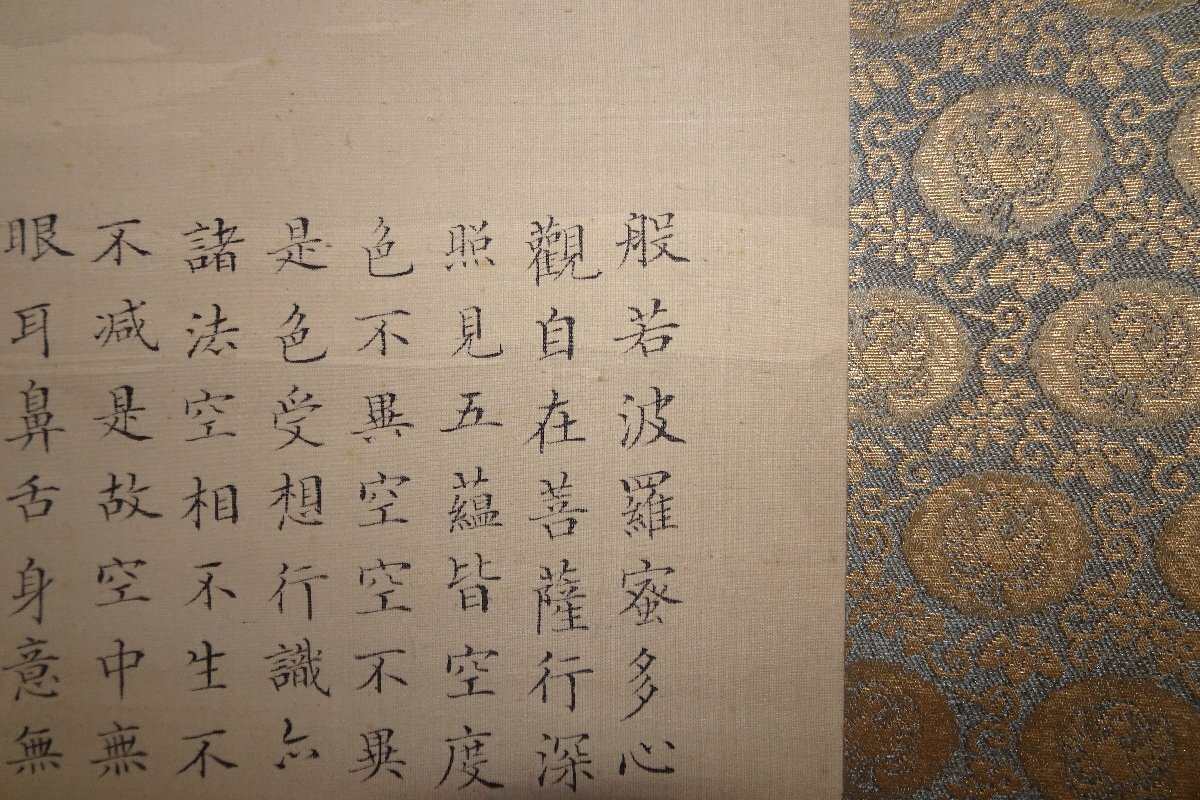 般若波羅蜜多心
觀自在菩薩行深
照見五蘊皆空度
色不異空空不異
是色受想行識亦
諸法空相不生不
不減是故空中無
眼耳鼻舌身意無